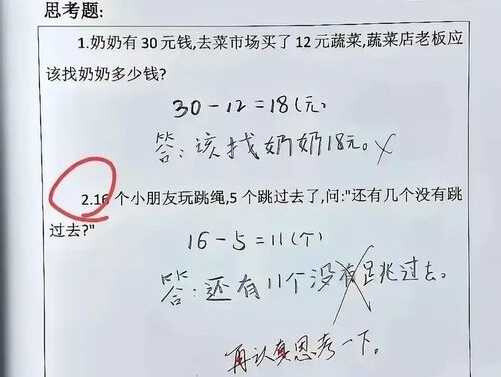 思考题:
1.奶奶有30元钱,去菜市场买了12元蔬菜,蔬菜店老板应
该找奶奶多少钱?
30-12=18(元)
答:该找奶奶18元。
2.16个小朋友玩跳绳,5个跳过去了,问:"还有几个没有跳
过去?"
16-5=11(个)
答:还有11个没有跳过去。
再认真思考一下。